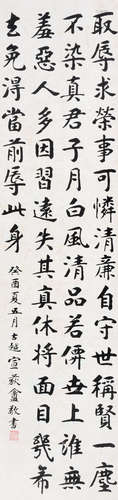 取辱求榮事可憐清廉自守世稱賢一塵
不染真君子月白風清品若僊世上誰無
羞惡人多習遠失其真休將面目幾希
去免得當前辱此身
癸酉夏五月古越宣荻盦敬書